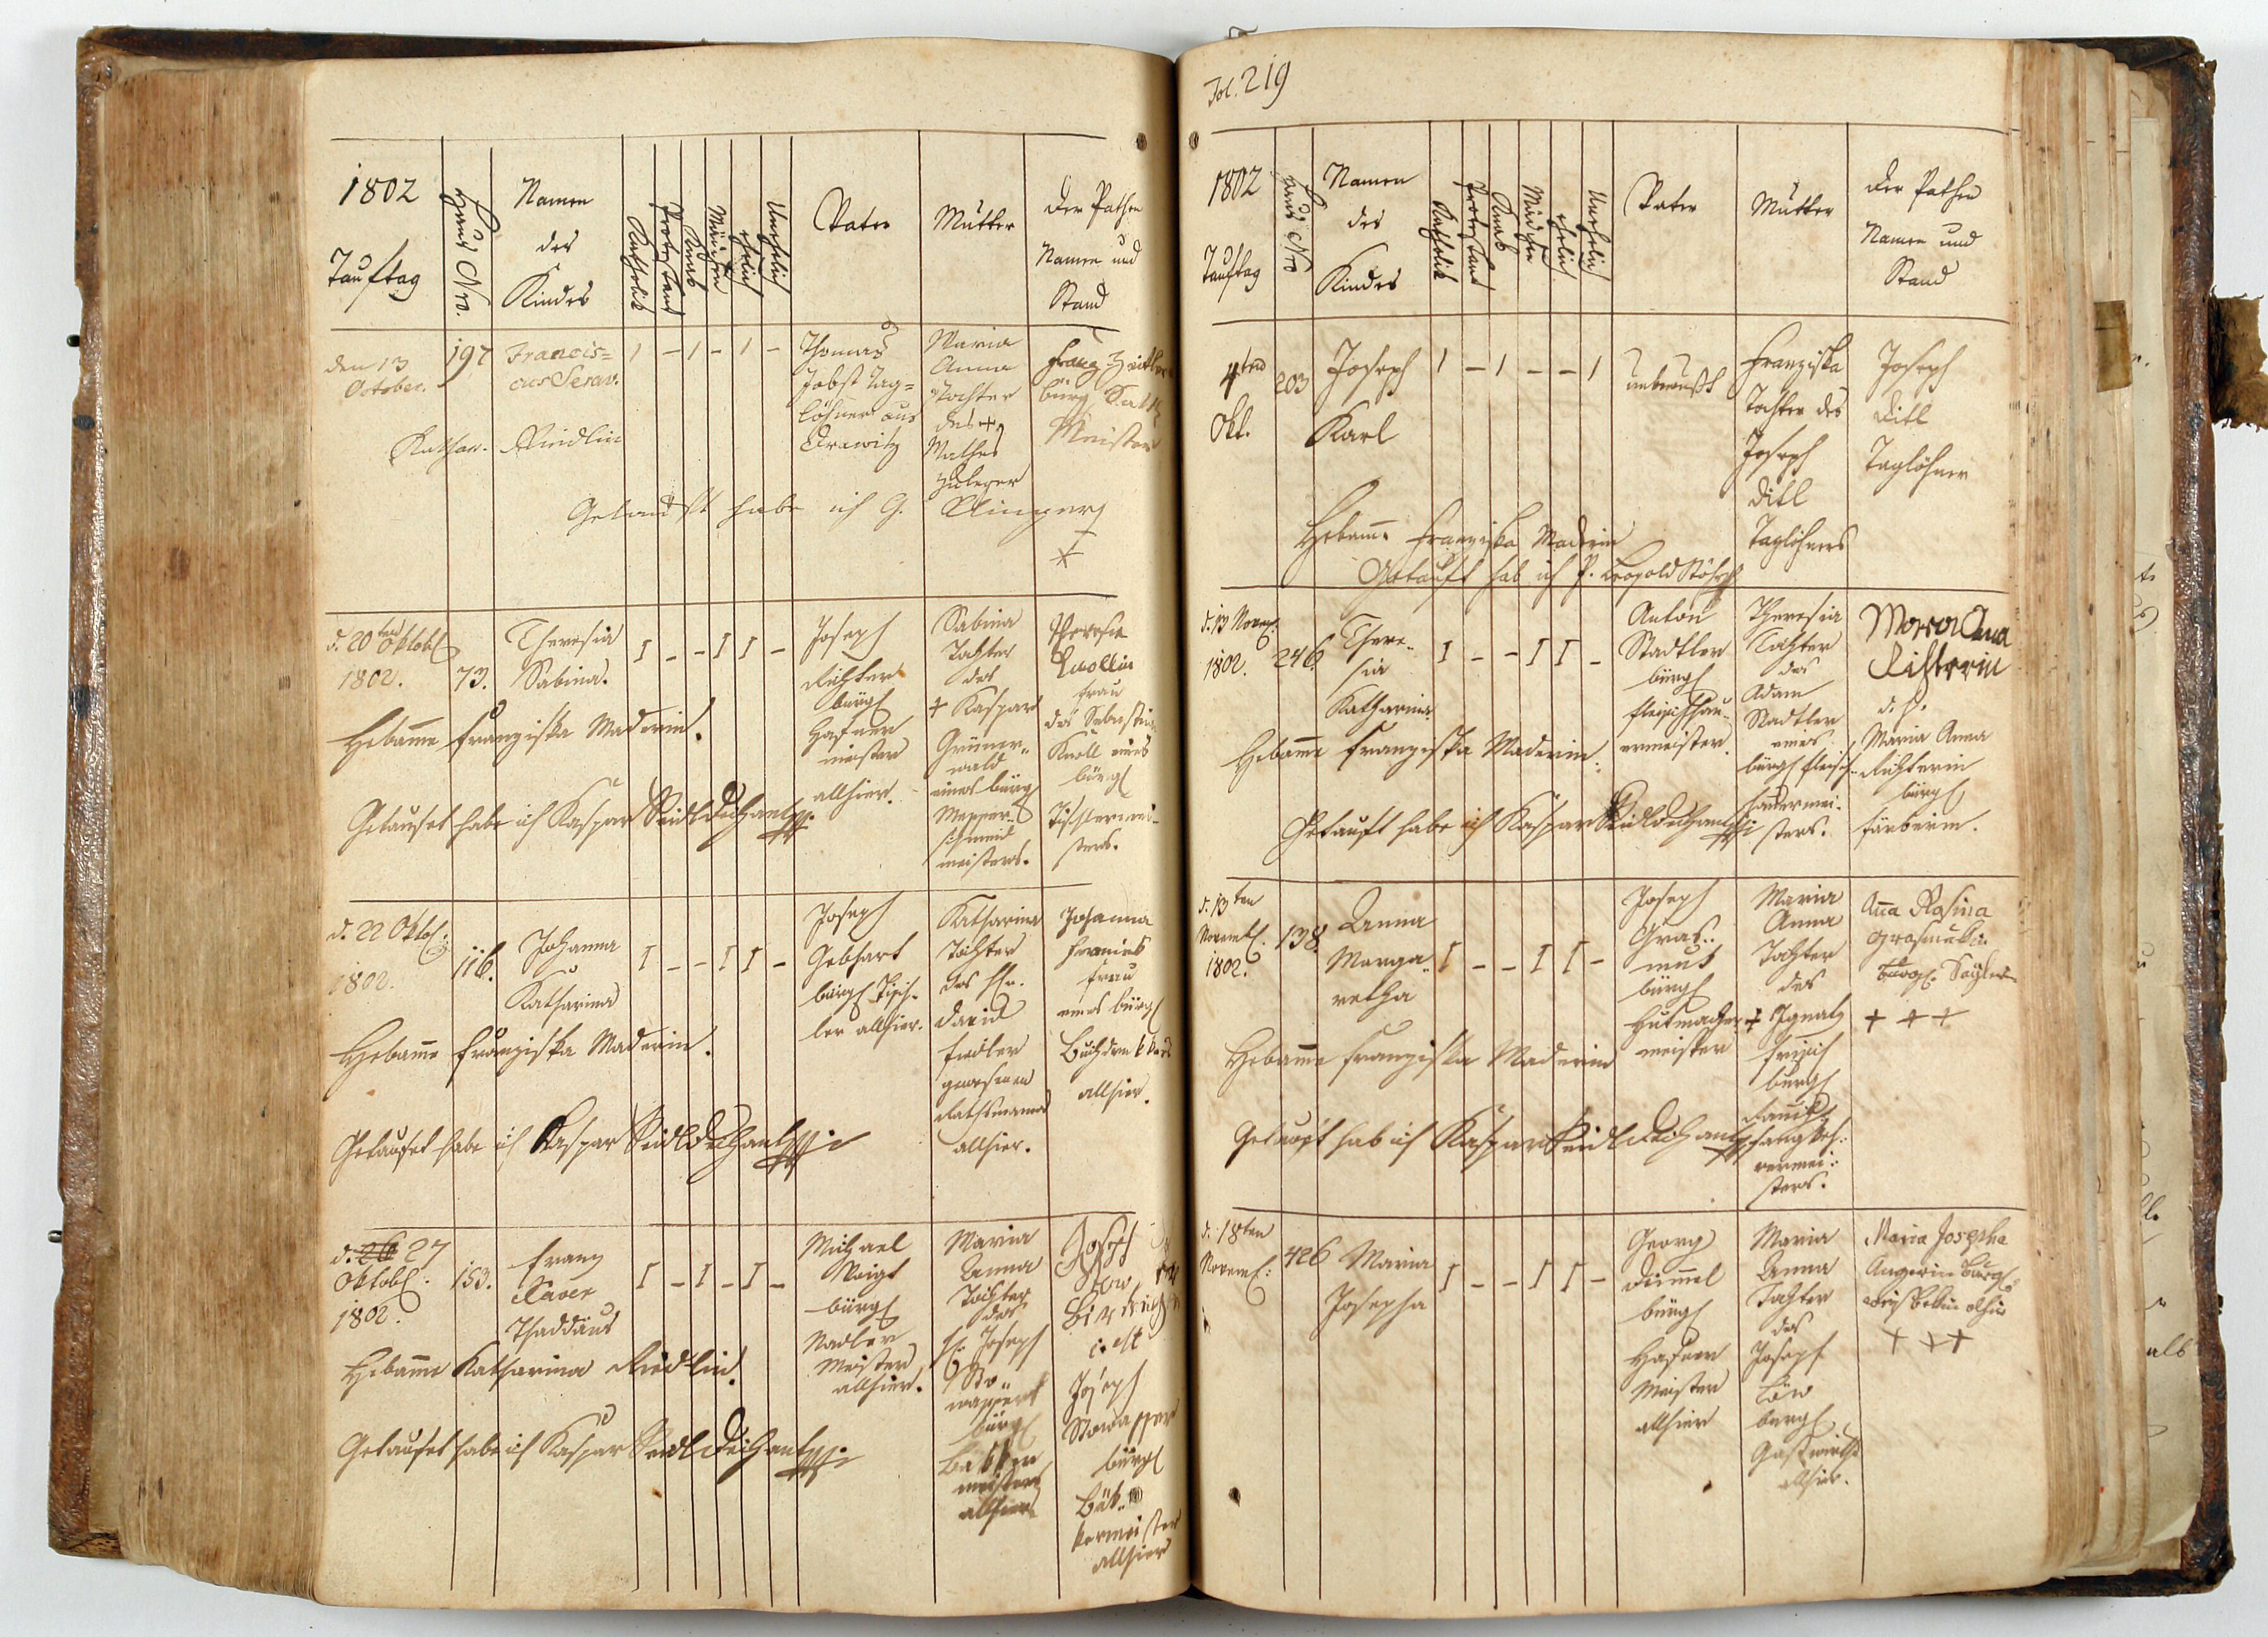 1802
Tauftag
Haus Nro.
Namen
des
Kindes
Katholisch
Protestant
Knab
Mädchen
ehelich
Unehelich
Vater
Mutter
Der Pathen
Namen und
Stand
den 13
October.
197
Francis=
cus Serav.
1 – 1 – 1 –
Thomas
Jobst Tag=
löhner aus
Maria
Anna
Tochter
des +
Mathes
Franz
bürg
Meister
Kathar. Riedlin
Getauft habe ich G.
d. 20ten Oktob
1802.
73.
Theresia
Sabina.
I – – I I –
Joseph
Richter
bürgl
Hafner
meister
allhier.
Sabina
Tochter
des
+ Kaspar
Grüner=
wald
eines bürgl
Messer=
schmied
meisters.
Theresia
Knollin
Frau
des Sebastian
Knoll eines
bürgl
Tischlermei=
sters.
Hebamme Franziska Maderin.
Getaufet habe ich Kaspar Seidl Dechant
d. 22 Oktob:
1802.
116.
Johanna
Katharina
I – – I I –
Joseph
Gebhart
bürgl Tisch=
ler allhier.
Katharina
Tochter
des Hr.
David
Fiedler
gewesenen
Rathsmanns
allhier.
Johanna
Frau
eines bürgl
allhier.
Hebamme Franziska Maderin.
Getaufet habe ich Kaspar Seidl Dechant
d. 26 27
Oktob.
1802.
153.
Franz
Xaver
Thaddäus
I – I – I –
Michael
Voigt
bürgl
Nadler
Meister
allhier.
Maria
Anna
Tochter
des
H. Joseph
bürgl
meisters
allhier
Joseph
i. est
Joseph
bürgl
Bäk=
kermeister
allhier
Hebamme Katharina Riedlin.
Getaufet habe ich Kaspar Seidl Dechant
Fol. 219
1802
Tauftag
Haus Nro
Namen
des
Kindes
Katholik
Protestant
Knab
Mädchen
ehelich
Unehelich
Vater
Mutter
Der Pathen
Namen und
Stand
4ten
Okt.
203
Joseph
Karl
1 – 1 – – 1
unbewußt
Franziska
Tochter des
Joseph
Ditl
Taglöhners
Joseph
Ditl
Taglöhner
Hebamm. Franziska Maderin
Getauft hab ich P. Leopold Stöhr
d. 13 Novem.
1802.
246.
There=
sia
Katharina.
I – – I I –
Anton
Stadtler
bürgl
Fleischhau=
ermeister.
Theresia
Tochter
des
Adam
Stadtler
eines
bürgl Fleisch=
hauermei=
sters.
Maria Anna
Richterin
d. h.
Maria Anna
Richterin
bürgl
Färberin.
Hebamme Franziska Maderin.
Getauft habe ich Kaspar Seidl Dechant
d. 13ten
Novemb.
1802.
138.
Anna
Marga=
retha
I – – I I –
Joseph
Gras=
muk
bürgl
Hutmacher
meister
Maria
Anna
Tochter
des
+ Ignatz
bürgl
rermei=
sters.
Aña Rosina
Grasmukin
bürgl.
+ + +
Hebamme Franziska Maderin
Getauft hab ich Kaspar Seidl Dechant
d. 18ten
Novemb:
426
Maria
Josepha
I – – I I –
Georg
bürgl
Hafner
Meister
allhier
Maria
Anna
Tochter
des
Joseph
Löw
bürgl
Gastwirths
allhier.
Maria Josepha
Angerin bürgl
+ + +